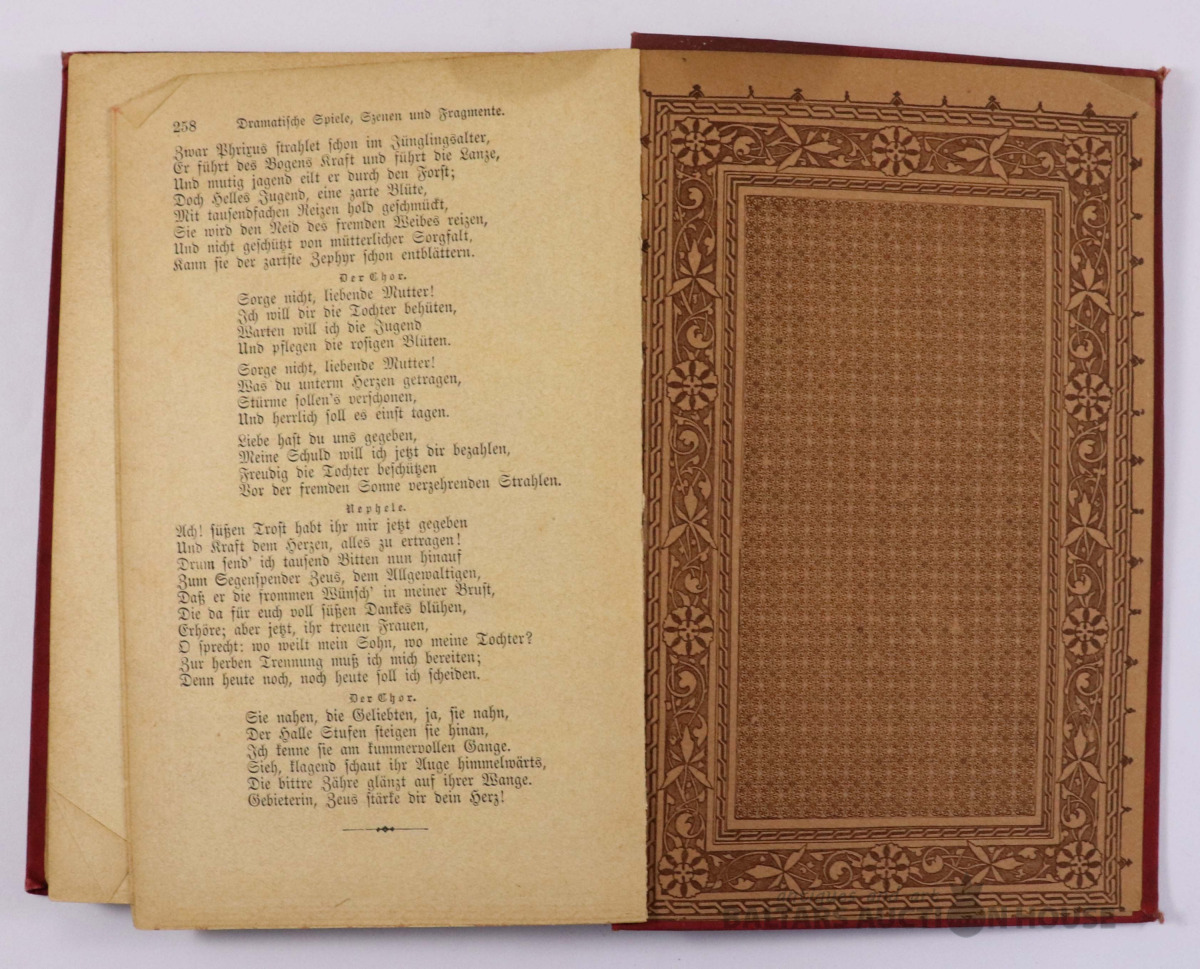 258 Dramatische Spiele, Szenen und Fragmente.
Zwar Phrixus strahlet schon im Jünglingsalter,
Er führt des Bogens Kraft und führt die Lanze,
Und mutig jagend eilt er durch den Forst;
Doch Helles Jugend, eine zarte Blüte,
Mit tausendfachen Reizen hold geschmückt,
Sie wird den Neid des fremden Weibes reizen,
Und nicht geschützt von mütterlicher Sorgfalt,
Kann sie der zartste Zephyr schon entblättern.
Der Chor.
Sorge nicht, liebende Mutter!
Ich will dir die Tochter behüten,
Warten will ich die Jugend
Und pflegen die rosigen Blüten.
Sorge nicht, liebende Mutter!
Was du unterm Herzen getragen,
Stürme sollen's verschonen,
Und herrlich soll es einst tagen.
Liebe hast du uns gegeben,
Meine Schuld will ich jetzt dir bezahlen,
Freudig die Tochter beschützen
Vor der fremden Sonne verzehrenden Strahlen.
Nephele.
Ach! süßen Trost habt ihr mir jetzt gegeben
Und Kraft dem Herzen, alles zu ertragen!
Drum send' ich tausend Bitten nun hinauf
Zum Segenspender Zeus, dem Allgewaltigen,
Daß er die frommen Wünsch' in meiner Brust,
Die da für euch voll süßen Dankes blühen,
Erhöre; aber jetzt, ihr treuen Frauen,
O sprecht: wo weilt mein Sohn, wo meine Tochter?
Zur herben Trennung muß ich mich bereiten;
Denn heute noch, noch heute soll ich scheiden.
Der Chor.
Sie nahen, die Geliebten, ja, sie nahn,
Der Halle Stufen steigen sie hinan,
Ich kenne sie am kummervollen Gange.
Sieh, klagend schaut ihr Auge himmelwärts,
Die bittre Zähre glänzt auf ihrer Wange.
Gebieterin, Zeus stärke dir dein Herz!
BALTARS AUCTION HOUSE